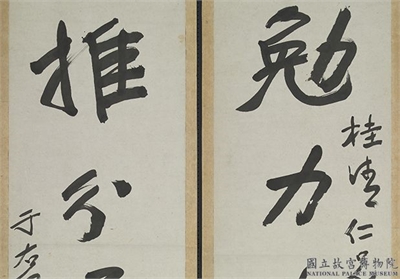 桂清仁
勉力
推分
于右
國立故宮博物院
NATIONAL PALACE MUSEUM